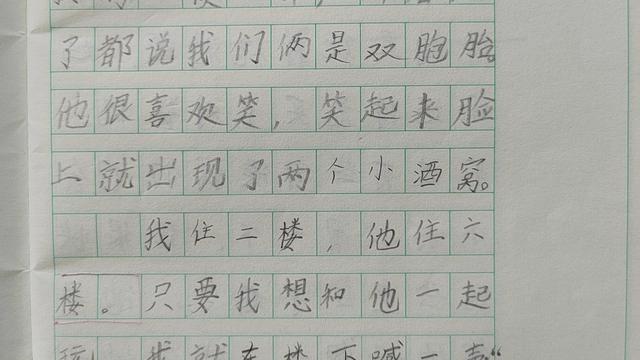 了都说我们俩是双胞胎。
他很喜欢笑，笑起来脸
上就出现了两个小酒窝。
我住二楼，他住六
楼。只要我想和他一起
玩，我就在楼下喊一声“